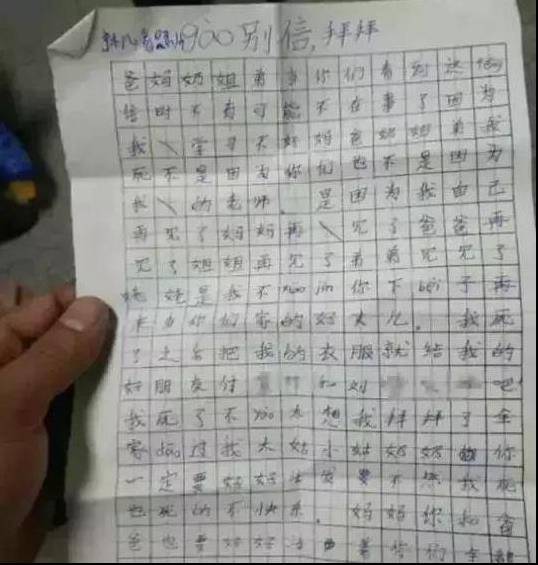 900别信,拜拜
爸妈奶姐弟弟你们看到这
信时不有可能不在事了因为
我\学习不好妈爸奶姐弟我
死不是因为你们也不是因为
我\的老师。是因为我自己
再见了妈妈再\见了爸爸再
见了姐姐再见了弟弟见见了
是我不你下bèi子再
你们家的好大儿。我死
了之后把我的衣服就给我的
好朋友付和刘吧!
我死了不yào太想我拜拜了全
家过我大姑小姑奶奶你
一定要好好活要不然我死
也死的不快乐。妈妈你和爸
爸也要好好活着你们全